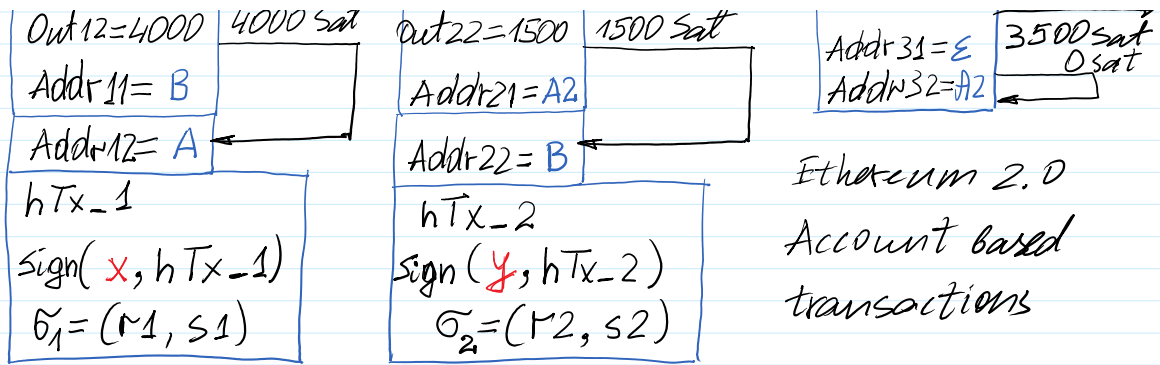 Out12=4000
4000 sat
Addr11= B
Addr12= A
hTx_1
sign( x, hTx_1)
σ1=(r1, s1)
Out22=1500
1500 sat
Addr21=A2
Addr22= B
hTx_2
sign( y, hTx_2)
σ2=(r2, s2)
Addr31=E
3500 sat
0 sat
Addr32=A2
Ethereum 2.0
Account based
transactions